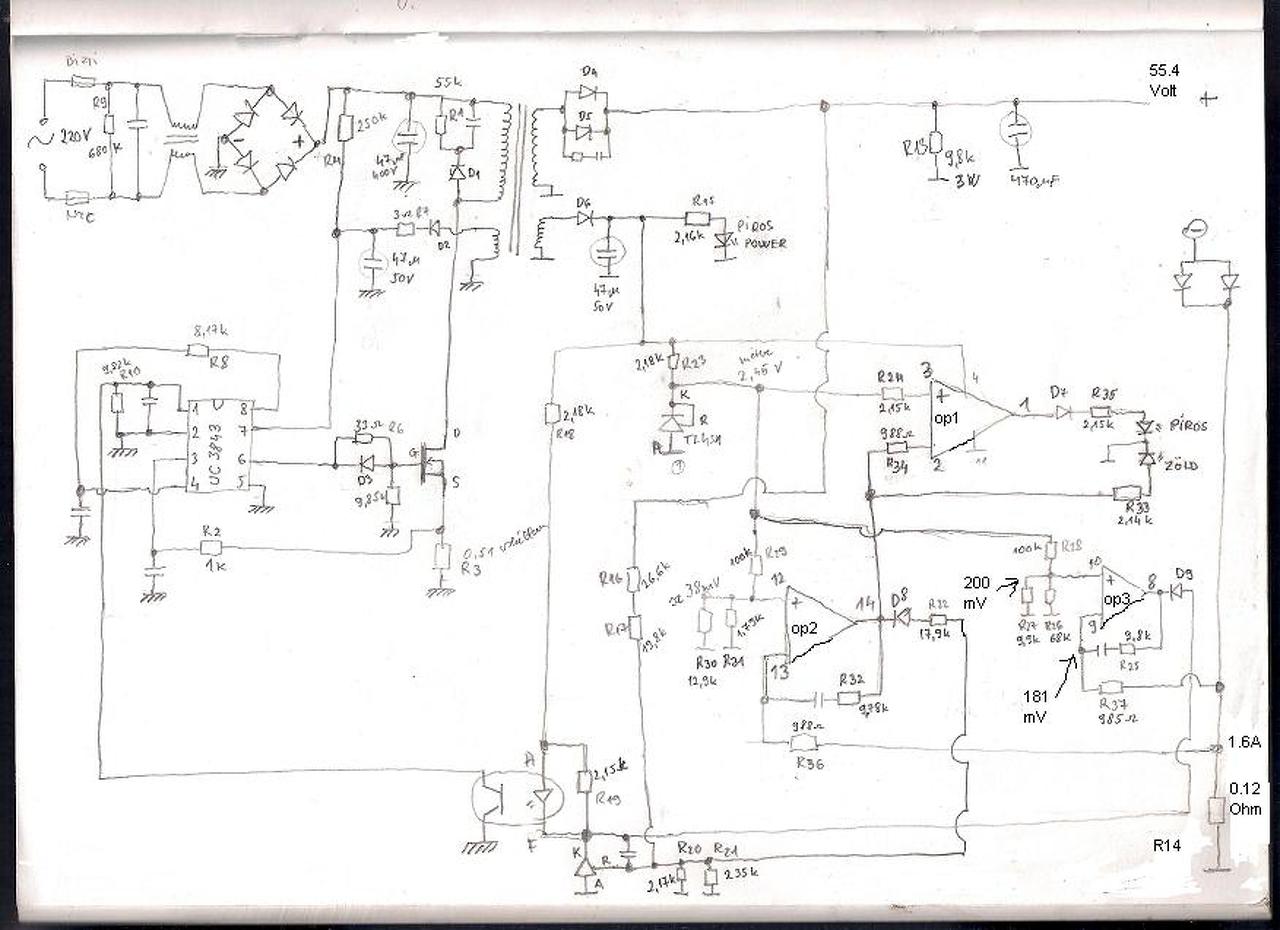 55.4
Volt
+
Bizti
R9
680K
~ 220V
NTC
-
+
250k
R11
47µF
400V
55k
R1
D1
D4
D5
R13
9,8k
3W
470µF
3Ω R7
D2
47µ
50V
D6
47µ
50V
R15
2,16k
PIROS
POWER
8,17k
R8
R10
1
2
3
4
8
7
6
5
UC3843
33Ω R6
D3
9,85k
G
D
S
R2
1k
R3
2,18k
R18
2,18k
R23
K
R
A
TL431
2,45 V
R24
2,15k
3
+
4
op1
2
11
1
988Ω
R34
D7
R35
2,15k
PIROS
ZÖLD
R33
2,14k
R16
26,6k
R17
19,8k
100k
R29
38mV
R30
12,9k
1,79k
12
+
op2
13
14
D8
R22
17,9k
R32
9,78k
988Ω
R36
100k
R28
200
mV
R27
9,9k
R26
68k
10
+
op3
9
8
D9
9,8k
R25
R37
985Ω
181
mV
1.6A
0.12
Ohm
R14
A
2,15k
R19
K
R
A
R20
2,17k
R21
235k